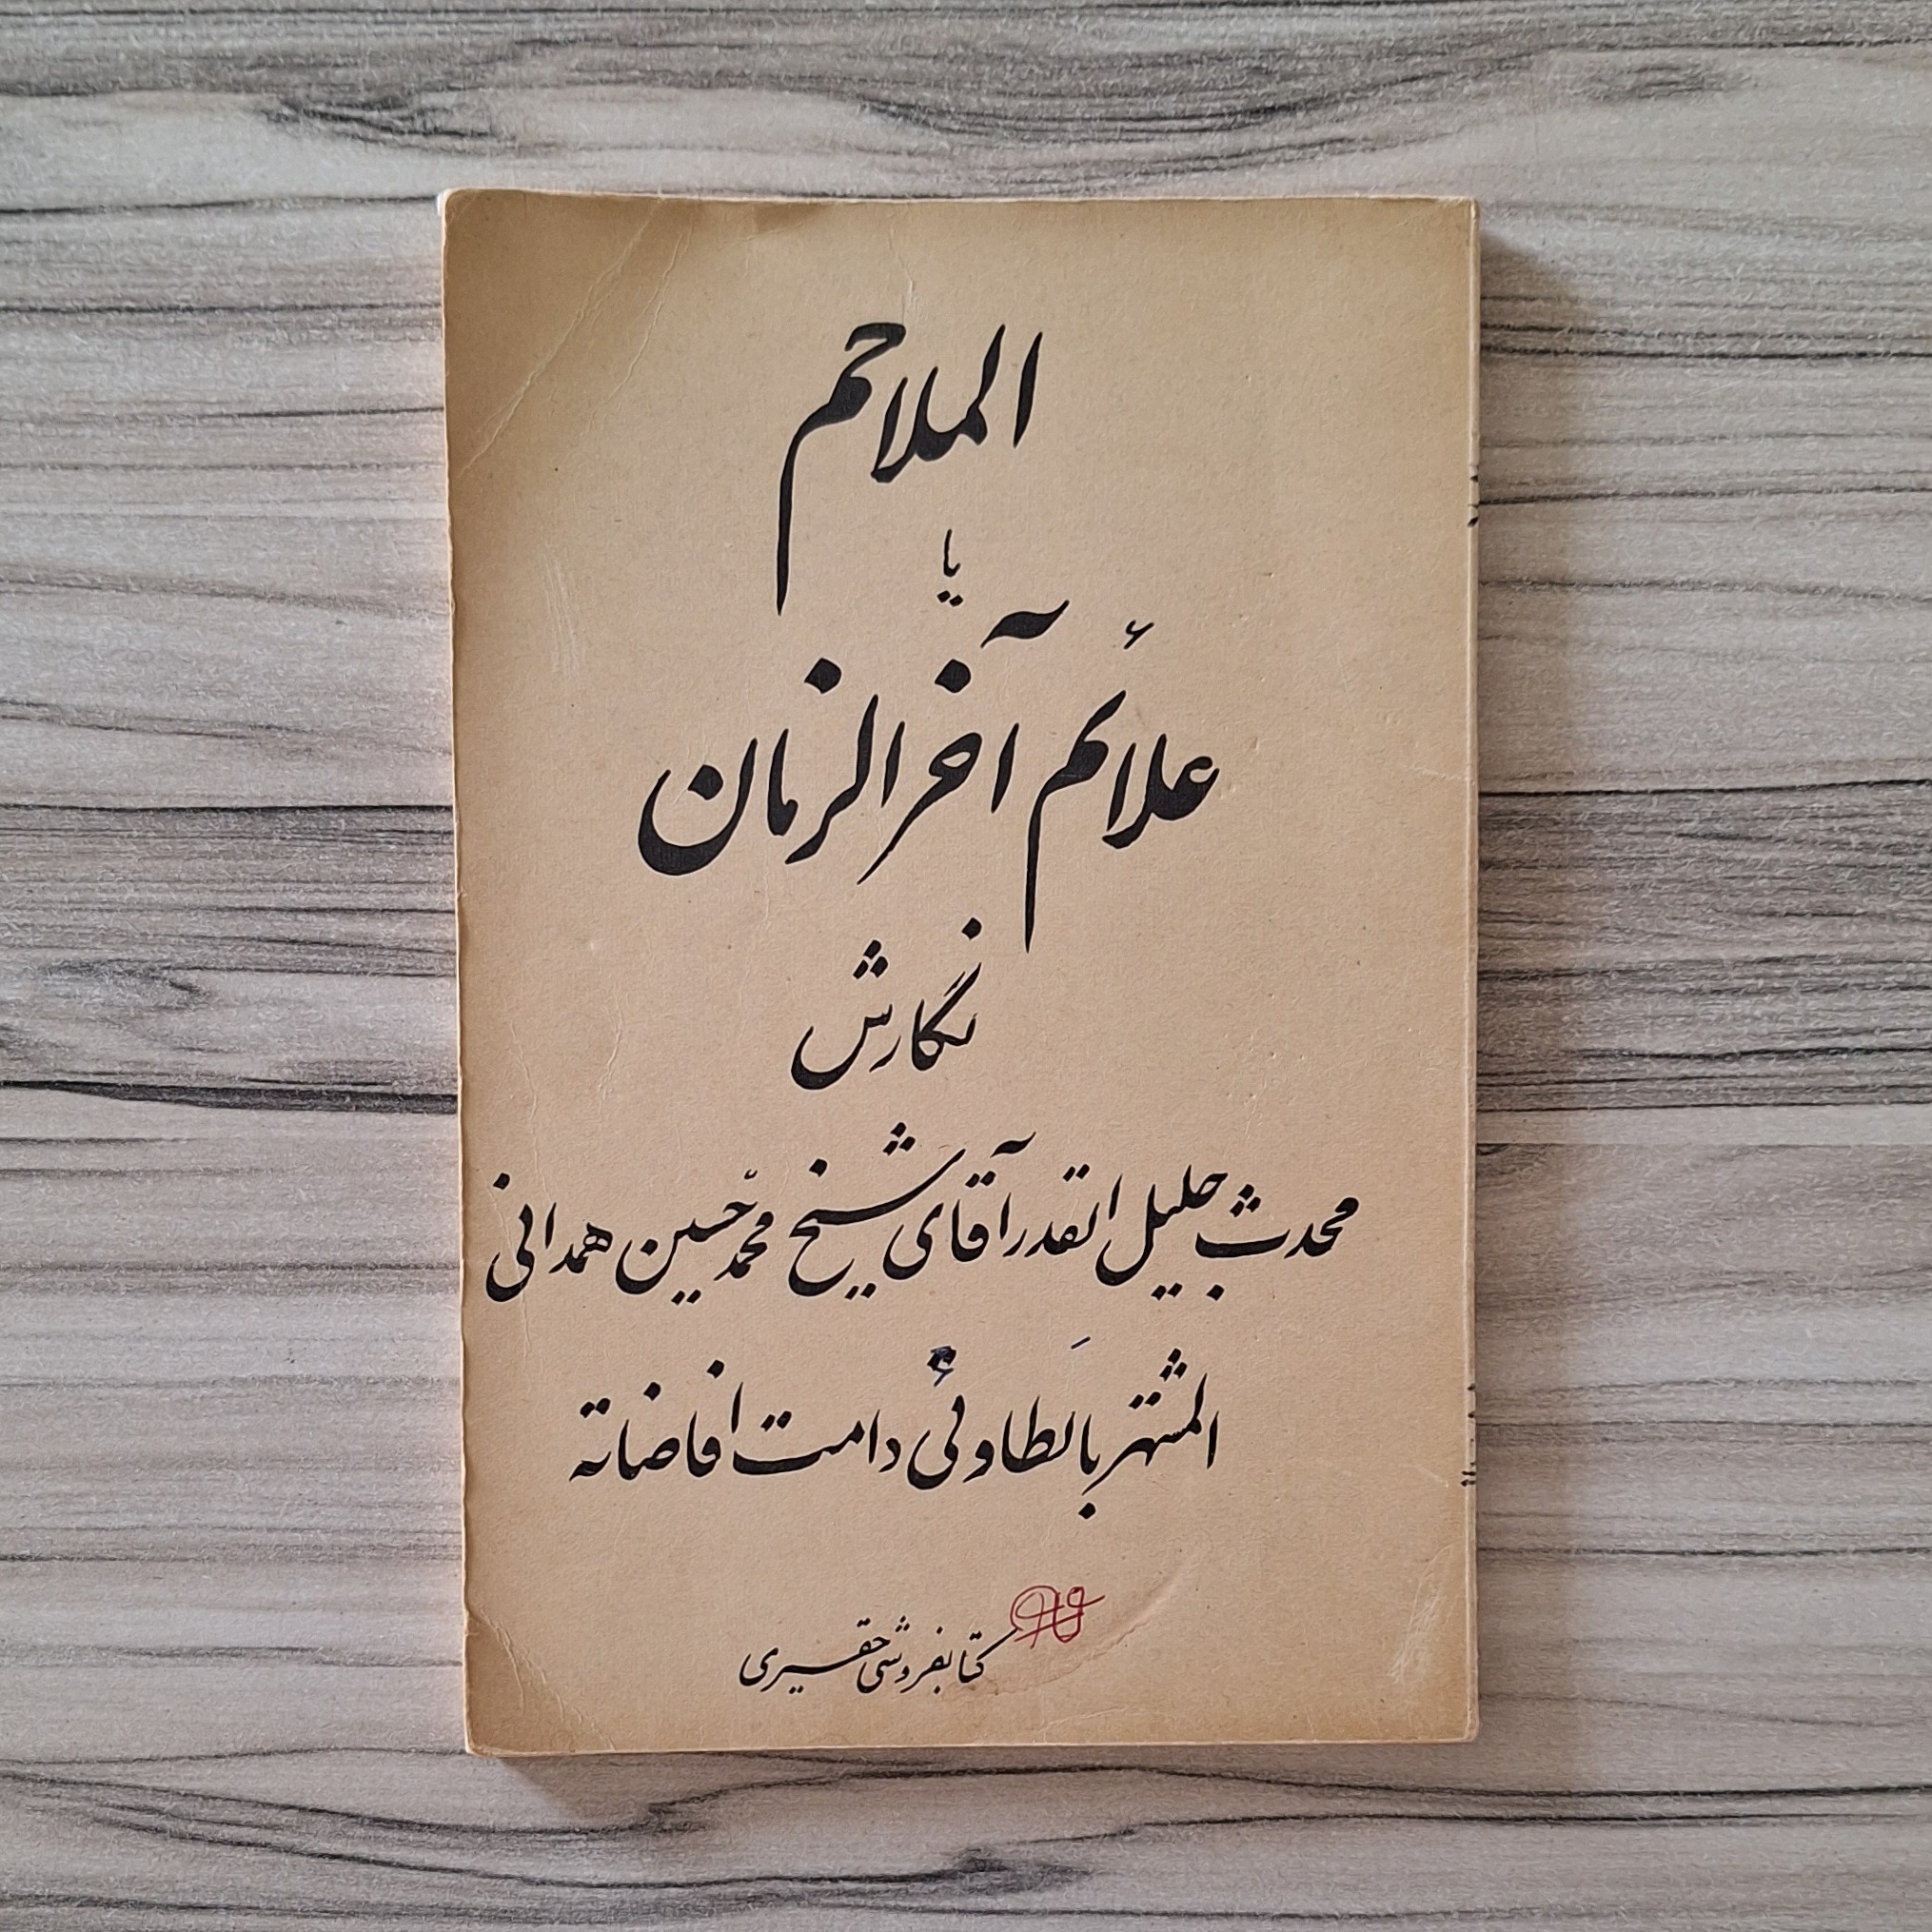 الملاحم
یا
علائم آخر الزمان
نگارش
محدث جلیل القدر آقای شیخ محمد حسین همدانی
المشتهر بالطاوئی دامت افاضاته
کتابفروشی حقیری